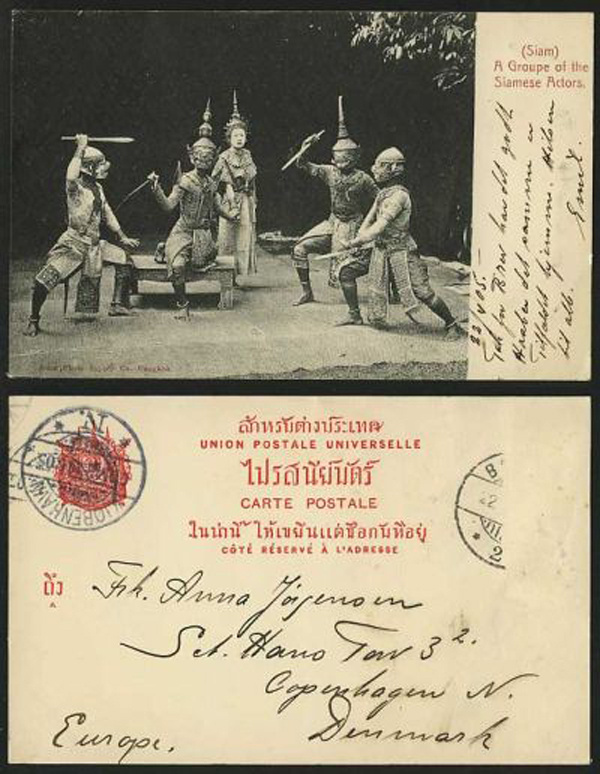 (Siam)
A Groupe of the
Siamese Actors.
22/V 05.
Tak for Brev har det godt
Haaber det samme er
hjemme. Hilsen
til alle. Emil.
สำหรับต่างประเทศ
UNION POSTALE UNIVERSELLE
ไปรสนียบัตร์
CARTE POSTALE
ในน่านี้ ให้เขียนแต่ชื่อกับที่อยู่
CÔTÉ RÉSERVÉ À L'ADRESSE
ถึง
Frk. Anna Jörgensen
Sct. Hans Torv 3 2.
Copenhagen N.
Denmark
Europe.
KJOBENHAVN